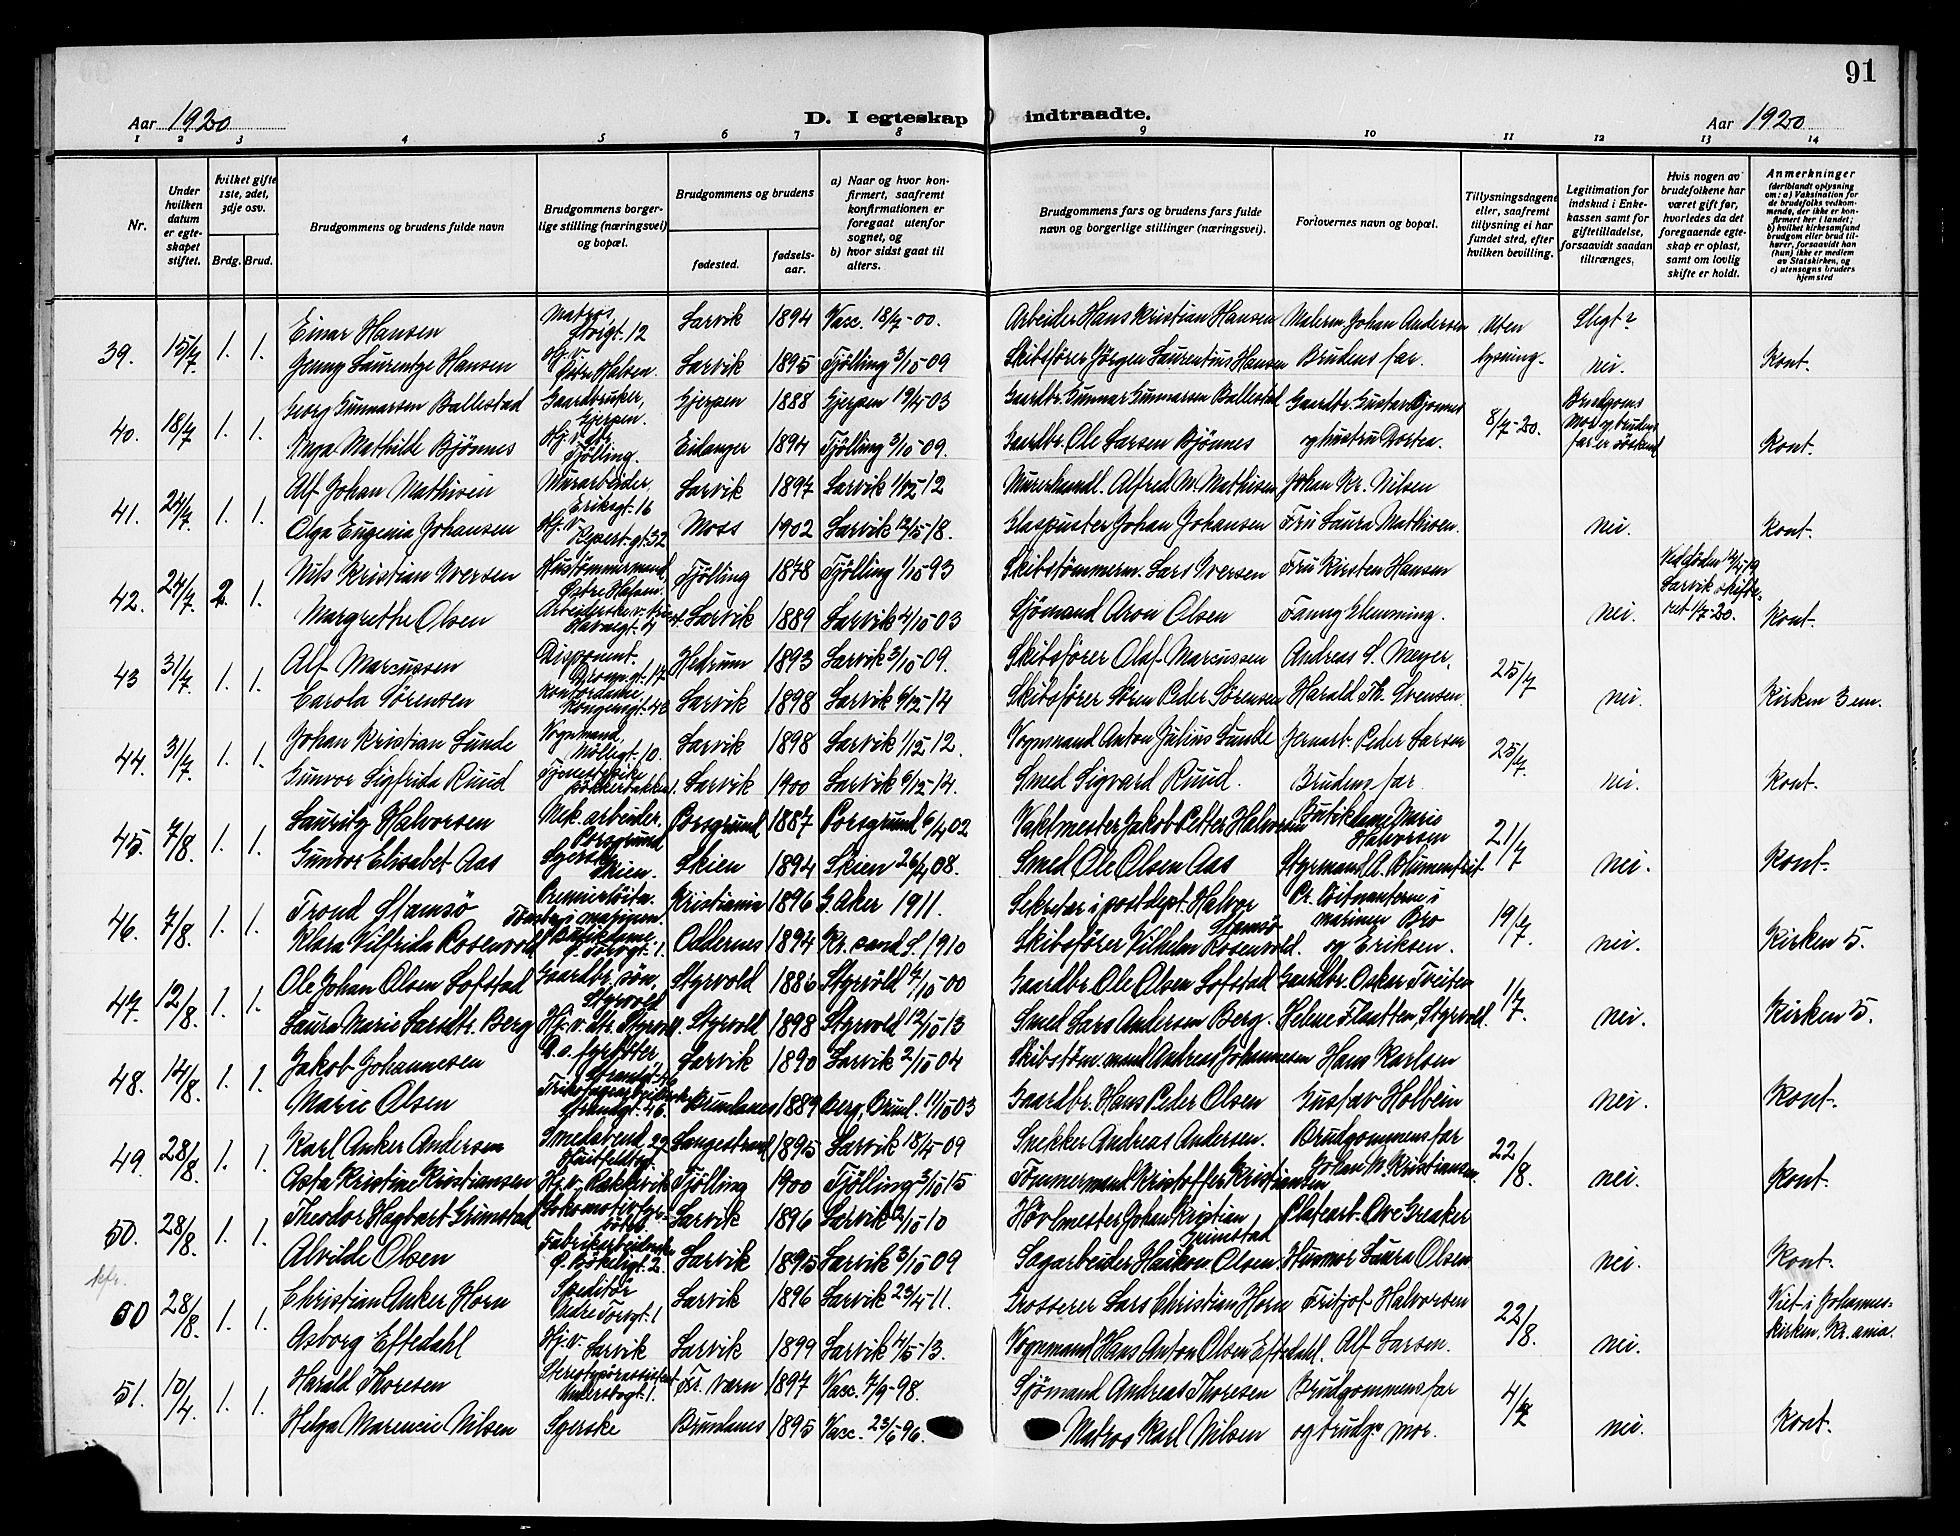 91
Aar 1920
D. I egteskap indtraadte.
Aar 1920
1 2 3 4 5 6 7 8 9 10 11 12 13 14
Nr.
Under hvilken datum er egteskapet stiftet.
hvilket gifte 1ste, 2det, 3dje osv.
Brdg. Brud.
Brudgommens og brudens fulde navn
Brudgommens borgerlige stilling (næringsvei) og bopæl.
Brudgommens og brudens
fødested.
fødselsaar.
a) Naar og hvor konfirmert, saafremt konfirmationen er foregaat utenfor sognet, og
b) hvor sidst gaat til alters.
Brudgommens fars og brudens fars fulde navn og borgerlige stillinger (næringsvei).
Forlovernes navn og bopæl.
Tillysningsdagene eller, saafremt tillysning ei har fundet sted, efter hvilken bevilling.
Legitimation for indskud i Enkekassen samt for giftetilladelse, forsaavidt saadan tiltrænges.
Hvis nogen av brudefolkene har været gift før, hvorledes da det foregaaende egteskap er opløst, samt om lovlig skifte er holdt.
Anmerkninger
(deriblandt oplysning om: a) Vaksination for de brudefolks vedkommende, der ikke er konfirmert her i landet; b) hvilket kirkesamfund brudgom eller brud tilhører, forsaavidt han (hun) ikke er medlem av Statskirken, og c) utensogns bruders hjemsted
39. 15/7 1. 1. Einar Hansen Matros, Storgt. 12 Larvik 1894 Vacc. 18/7-00. Arbeider Hans Kristian Hansen Malerm. Johan Andersen Uten Slegt?
Jenny Laurentze Hansen Hj. v. Østre Halsen. Larvik 1895 Tjølling 3/10 09 Skibsfører Jørgen Laurentius Hansen Brudens far. lysning. nei. Kont.
40. 18/7 1. 1. Georg Gunnarsen Ballestad Gaardbruker, Gjerpen. Gjerpen 1888 Gjerpen 19/4-03 Gaardbr. Gunnar Gunnarsen Ballestad Gaardbr. Gustav Bjønnes 8/7-20. Brudgoms
Inga Mathilde Bjønnes Hj. v. Tjølling. Eidanger 1894 Tjølling 3/10 09. Gaardbr. Ole Larsen Bjønnes og hustru Dortea. Mor og brudens far er søskend Kont.
41. 24/7 1. 1. Alf Johan Mathisen Murarbeider, Eriksgt. 16 Larvik 1897 Larvik 1/12-12 Murerhandl. Alfred M. Mathisen Johan Kr. Nilsen
Olga Eugenia Johansen Hj. v. Repert.gt. 32 Moss 1902 Larvik 12/5-18. Glaspuster Johan Johansen Fru Laura Mathisen. nei. Kont.
42. 24/7 2. 1. Nils Kristian Iversen Hustømmermand, Østre Halsen. Tjølling 1878 Tjølling 1/10 93 Skibstømmerm. Lars Iversen Fru Kirsten Hansen Larvik skifteret 1/7-20.
Margrethe Olsen Larvik 1889 Larvik 4/10-03 Sjømand Aron Olsen Fanny Flemming. nei. Kont.
43 31/7 1. 1. Alf Marcussen Disponent, Hedrum 1893 Larvik 3/10-09. Skibsfører Olaf Marcussen Andreas S. Meyer, 25/7
Carola Sørensen Kontordame Kongensgt. 43 Larvik 1898 Larvik 6/12-14 Skibsfører Søren Peder Sørensen Harald Th. Svensen. nei. Kirken 3 em.
44. 31/7 1. 1. Johan Kristian Lunde Vognmand, Møllegt. 10. Larvik 1898 Larvik 1/12 12. Vognmand Anton Julius Lunde Jernarb. Peder Larsen 25/7.
Gunvor Sigfrida Ruud Tjenestepike Larvik 1900 Larvik 6/12-14. Smed Sigvard Ruud. Brudens far nei. Kont.
45. 7/8. 1. 1. Lauritz Halvorsen Mek. arbeider. Porsgrund Porsgrund 1887 Porsgrund 6/4 02 Vaktmester Jakob Petter Halvorsen Butikdame Marie Halvorsen 21/7
Gunvor Elisabet Aas Syerske Skien. Skien 1894 Skien 26/4 08. Smed Ole Olsen Aas Styrmand A. Blumentrit nei. Kont.
46. 7/8. 1. 1. Trond Stamsø Premierløitn. i marinen. Kristiania 1896 G. Aker 1911. Sekretær i postdept. Halvor Stamsø Pr. Løitnanterne i marinen Bro 19/7.
Klara Vilfrida Rosenvold Butikdame Oddernes 1894 Kr.sand S. 1910 Skibsfører Vilhelm Rosenvold. og Eriksen. nei. Kirken 5.
47. 12/8. 1. 1. Ole Johan Olsen Lofstad Gaardbr. søn, Styrvold Styrvold 1886 Styrvold 7/10-00 Gaardbr. Ole Olsen Lofstad Gaardbr. Oskar Tveiten 1/7.
Laura Marie Larsdtr. Berg Hj. v. dtr. Styrvold. Styrvold 1898 Styrvold 12/10 13 Smed Lars Andersen Berg. Helene Flaatten, Styrvold. nei. Kirken 5.
48. 14/8. 1. 1. Jakob Johannesen D.s. fyrbøter, Larvik 1890 Larvik 2/10-04 Skibstøm.mand Andreas Johannesen Hans Karlsen
Marie Olsen Strandgt. 46. Brunlanes 1889 Berg, Brunl. 11/10 03 Gaardbr. Hans Peder Olsen Gustav Holbein nei. Kont.
49. 28/8. 1. 1. Karl Anker Andersen Smedsvend, Langestrand 1895 Larvik 18/4-09 Snekker Andreas Andersen. Brudgommens far 22/8.
Asta Kristine Kristiansen Hj. v. Rakkevik Tjølling 1900 Tjølling 3/10 15 Tømmermand Kristoffer Kristiansen Johan M. Kristiansen nei. Kont.
50. 28/8. 1. 1. Theodor Hagbart Grimstad Lokomotivfyrbøter Larvik 1896 Larvik 2/10 10 Høvlmester Johan Kristian Grimstad Platearb. Ove Greaker
Alvilde Olsen Fabrikarbeiderske Ø. Bøkeligt. 2. Larvik 1895 Larvik 3/10 09 Sagarbeider Haakon Olsen. Husmor Laura Olsen nei. Kont.
50 28/8. 1. 1. Christian Anker Horn Speditør Larvik 1896 Larvik 23/4-11. Grosserer Lars Christian Horn Fritjof Halvorsen 22/8. Viet i Johannes-
Asborg Eftedahl Hj. v. Larvik Larvik 1899 Larvik 4/5-13. Vognmand Hans Anton Olsen Eftedahl. Alf Larsen. nei. kirken, Kr.ania.
51. 10/4. 1. 1. Harald Thoresen Fr. værn 1897 Vacc. 7/9-98. Sjømand Andreas Thoresen Brudgommens far 4/7
Helga Marencie Nilsen Syerske Brunlanes 1895 Vacc. 23/6 96. Matros Karl Nilsen og brudgs mor. nei. Kont.